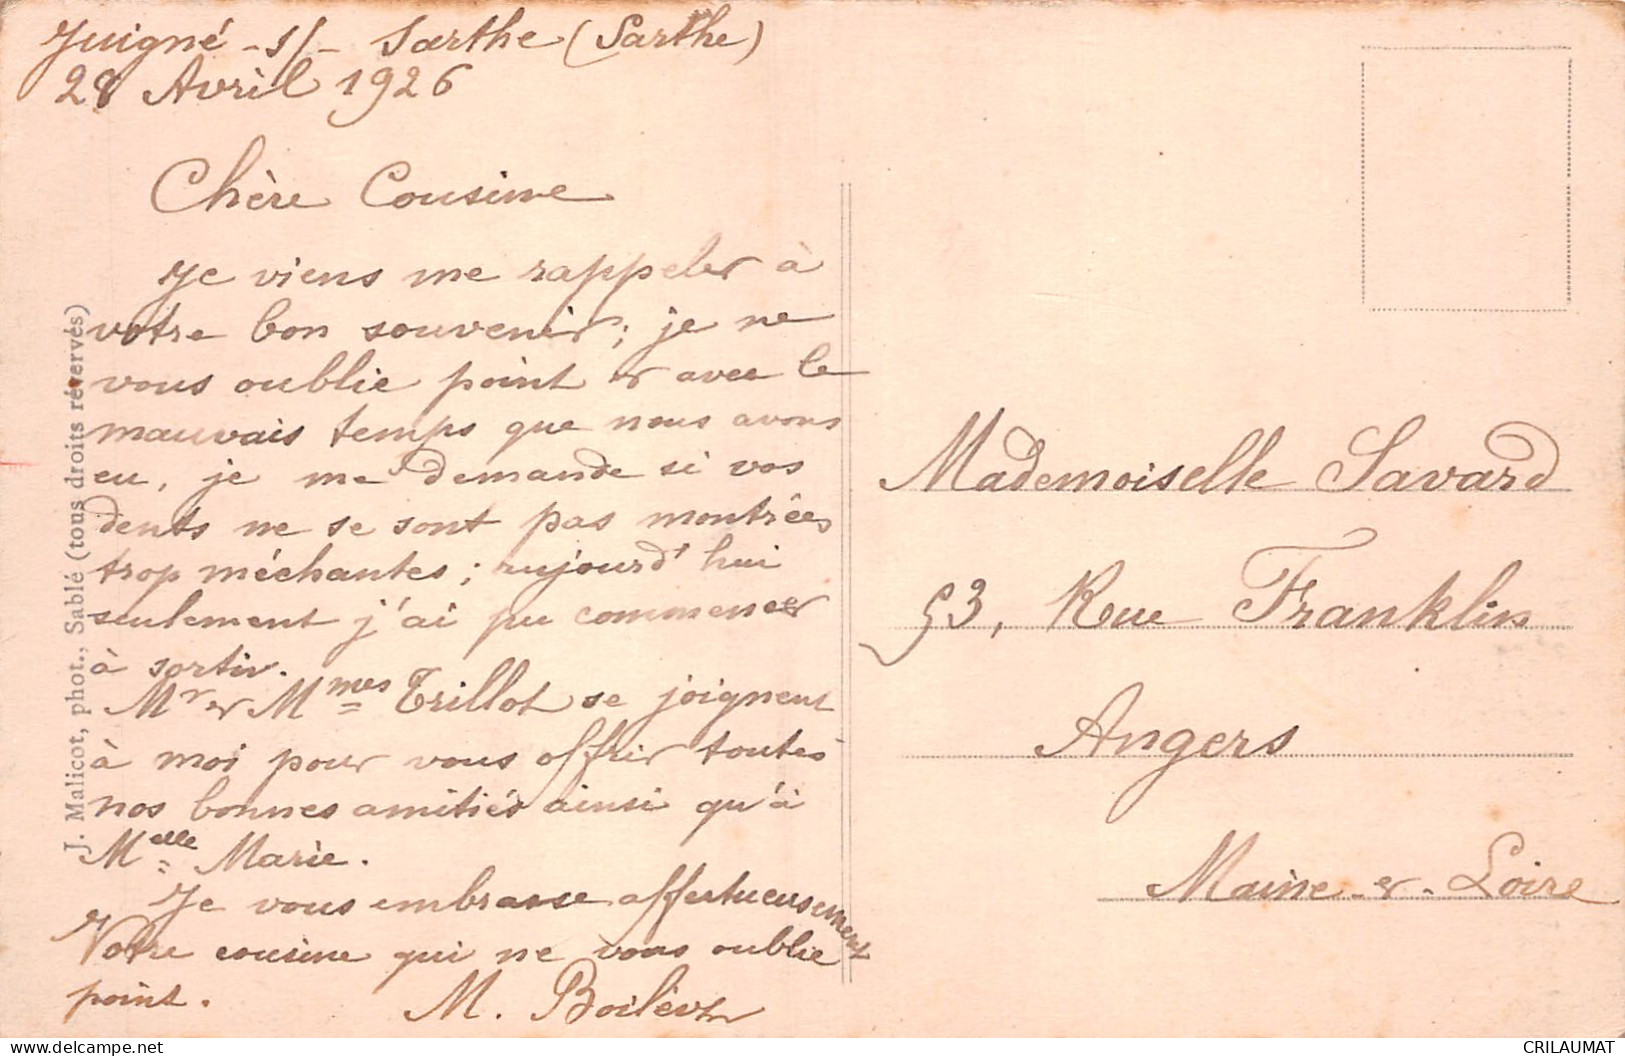 Juigné -s/- Sarthe (Sarthe)
28 Avril 1926
Chère Cousine
Je viens me rappeler à
votre bon souvenir; je ne
vous oublie point et avec le
mauvais temps que nous avons
eu, je me demande si vos
dents ne se sont pas montrées
trop méchantes; aujourd'hui
seulement j'ai pu commencer
à sortir.
Mr et Mmes Trillot se joignent
à moi pour vous offrir toutes
nos bonnes amitiés ainsi qu'à
Melle Marie.
Je vous embrasse affectueusement
Votre cousine qui ne vous oublie
point.
M. Boilève
J. Malicot, phot., Sablé (tous droits réservés)
Mademoiselle Savard
53, Rue Franklin
Angers
Maine-et-Loire
CRILAUMAT
www.delcampe.net